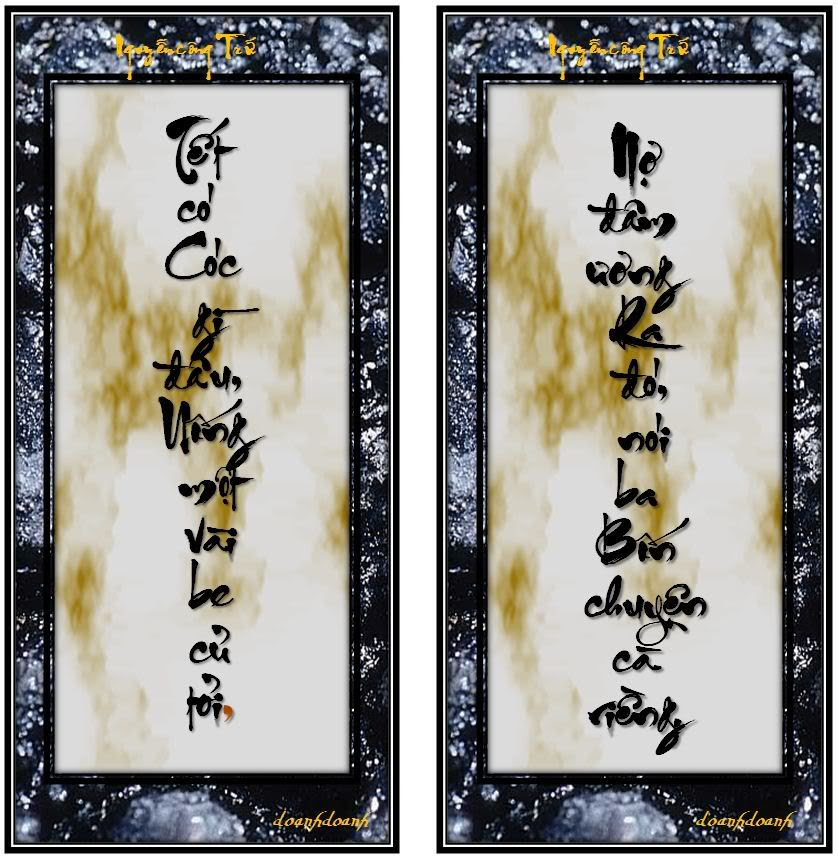 Nguyễn công Trứ
Tết
có
Cóc
gì
đâu,
Uống
một
vài
be
củ
tỏi,
doanhdoanh
Nguyễn công Trứ
Nợ
đâm
ương
Ra
đó,
nói
ba
Bốn
chuyện
cà
riềng,
doanhdoanh